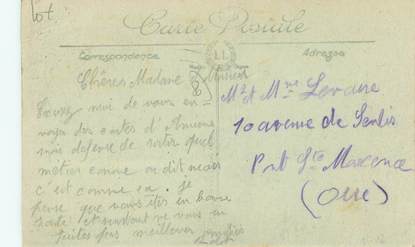 lot
Carte Postale
Correspondance
Adresse
LL
Chères Madame Monsieur
moi de vous en =
voyer des cartes d'Amiens
mais défense de sortir quel
métier comme on dit mais
c'est comme ça. Je
pense que vous êtes en bonne
santé et surtout ne vous en
faites pas meilleur
Mr et Mme Levaire
10 avenue de Senlis
Pnt Ste Maxence
(Oise)